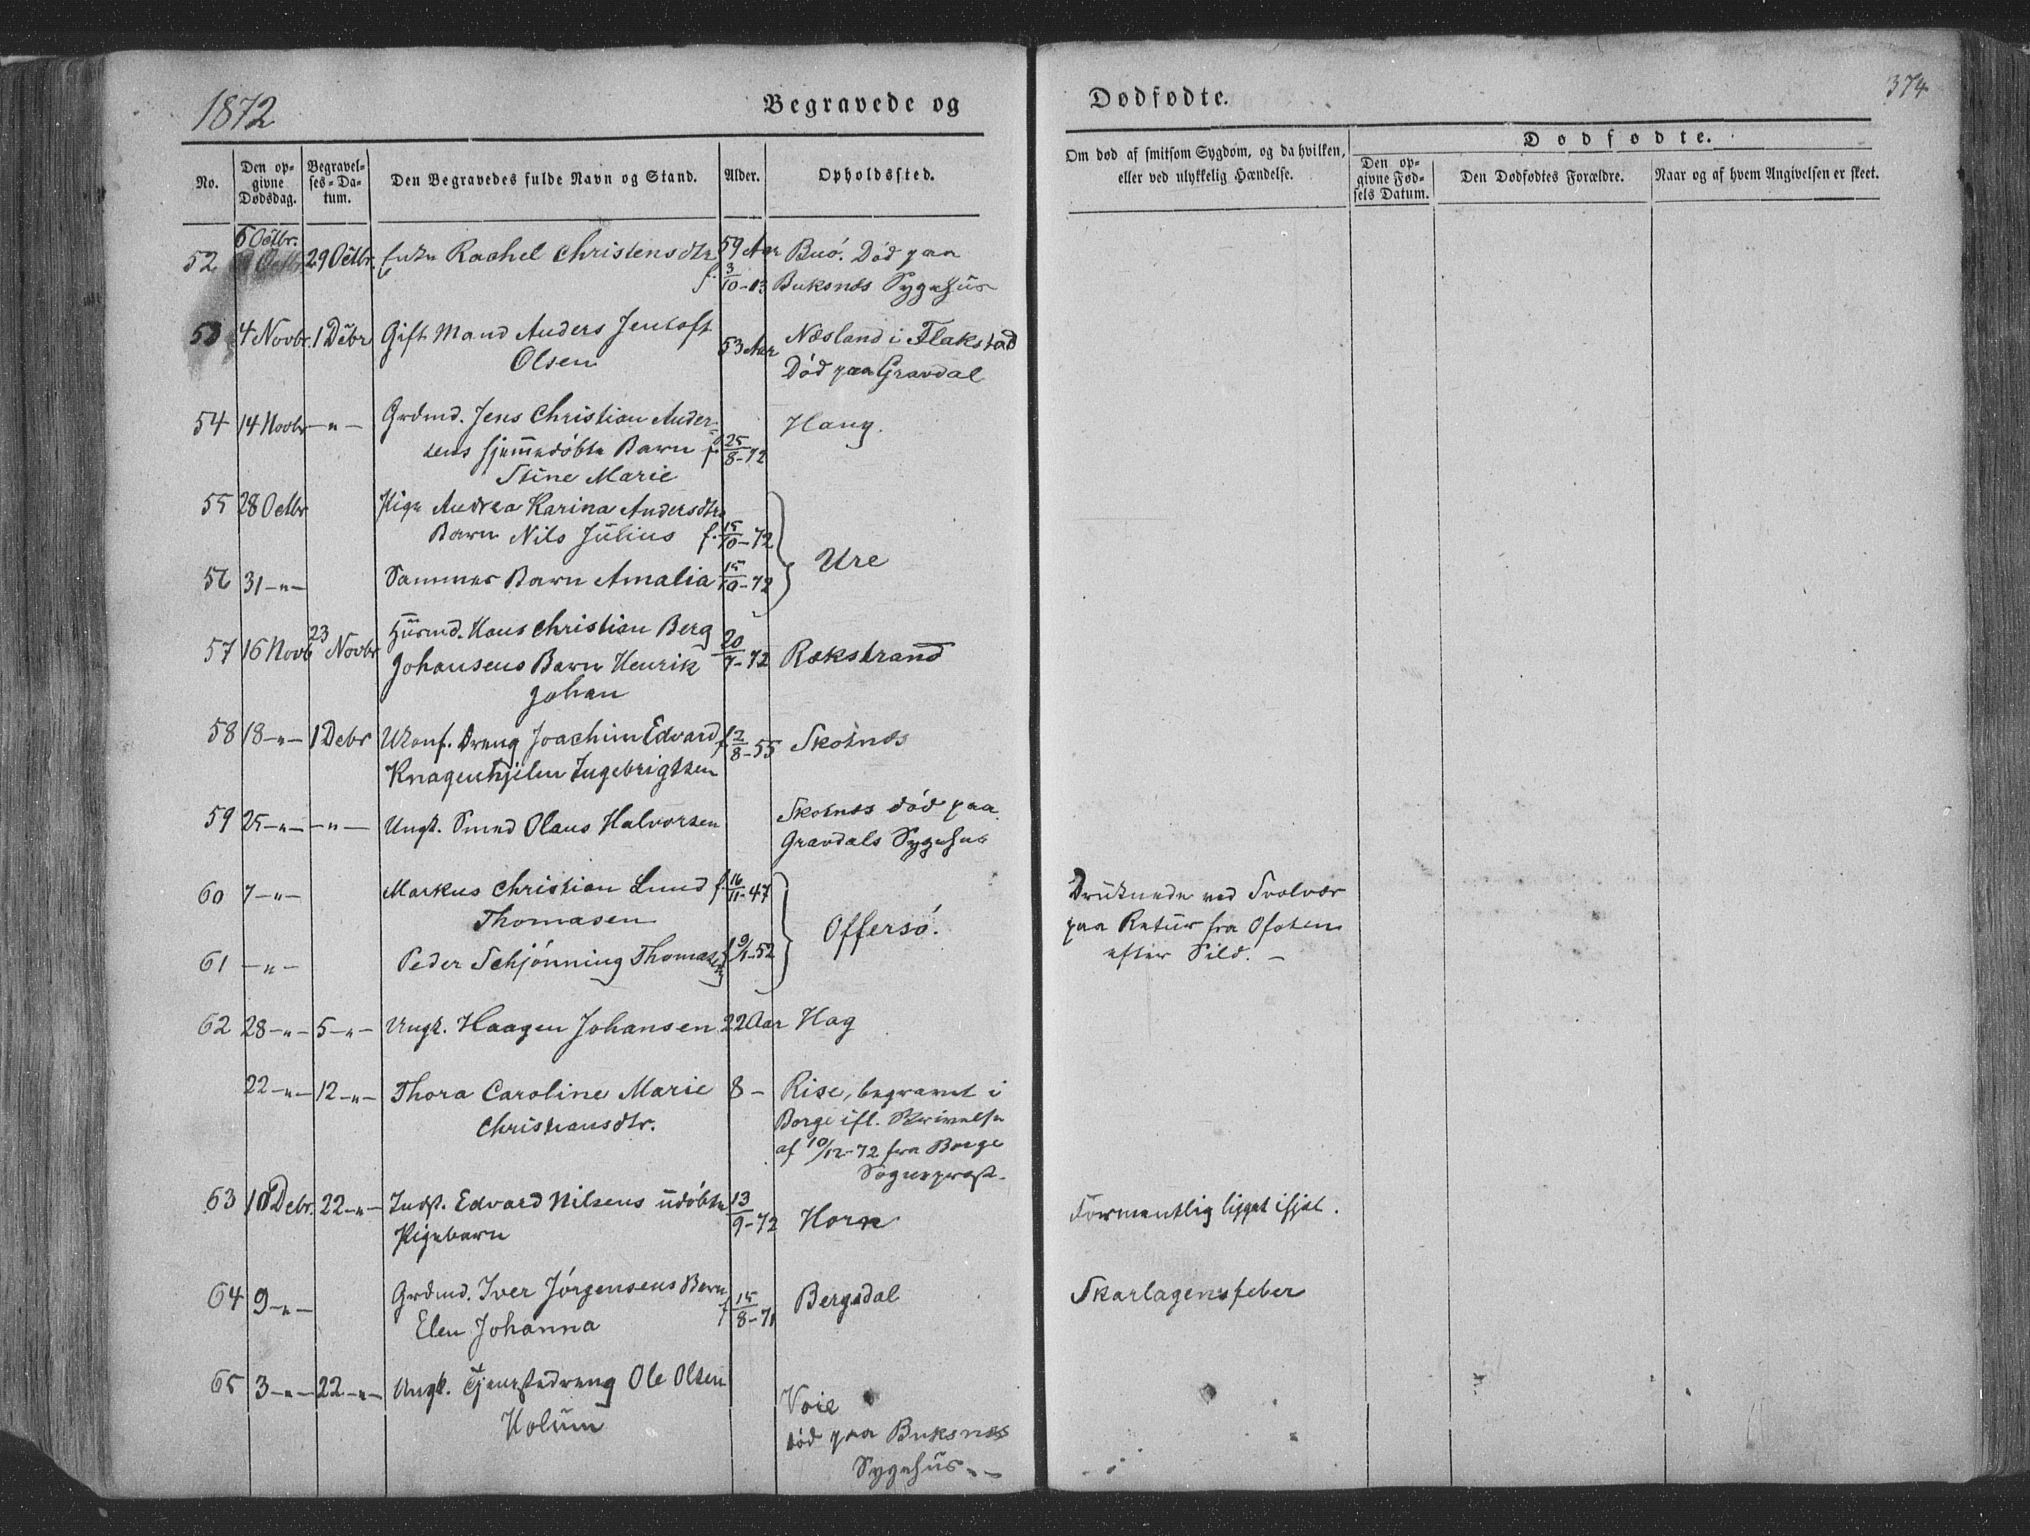 1872
Begravede og
Dødfødte.
374
No.
Den opgivne Dødsdag.
Begravelses-Datum.
Den Begravedes fulde Navn og Stand.
Alder.
Opholdssted.
Om død af smitsom Sygdom, og da hvilken, eller ved ulykkelig Hændelse.
Dødfødte.
Den opgivne Fødsels Datum.
Den Dødfødtes Forældre.
Naar og af hvem Angivelsen er skeet.
6 Octbr.
52 29 Octbr. Enke Rachel Christensdtr 59 Aar Buø. Død paa
f. 3/10-13 Buksnæs Sygehus
53 4 Novbr. 1 Debr Gift Mand Anders Jentoft 53 Aar Næsland i Flakstad
Olsen Død paa Gravdal
54 14 Novbr -"- Grdmd. Jens Christian Ander- Haug.
sens hjemmedøbte Barn f. 25/8-72
Stine Marie
55 28 Octbr Pige Andrea Karina Andersdtrs
Barn Nils Julius f. 15/10-72
Ure
56 31 -"- Sammes Barn Amalia 15/10-72
57 16 Novb 23 Novbr Husmd. Hans Christian Berg 20/7-72 Rækstrand
Johansens Barn Henrik
Johan
58 18 -"- 1 Debr Ukonf. Dreng Joachim Edvard f 2/8-55 Skotnæs
Knagenhjelm Ingebrigtsen
59 25 -"- -"- Ungk. Smed Olaus Halvorsen Skotnæs død paa
Gravdals Sygehus
60 7 -"- Markus Christian Lund f. 16/11-47 Druknede ved Svolvær
Thomasen Offersø. paa Retur fra Ofoten
61 -"- Peder Schjønning Thomasen f 9/1-52 efter Sild. -
62 28 -"- 5 -"- Ungk. Haagen Johansen 22 Aar Hag
22 -"- 12 -"- Thora Caroline Marie 8 - Rise, begravet i
Christiansdtr. Borge ifl. Skrivelse
af 10/12-72 fra Borge
Sogneprest.
63 10 Debr. 22 -"- Indst. Edvard Nilsens udøbte 13/9-72 Horn Formentlig ligget ihjel.
Pigebarn
64 9 -"- Grdmd. Iver Jørgensens Barn f 15/8-71 Bergsdal Skarlagensfeber
Elen Johanna
65 3 -"- 22 -"- Ungk. Tjenestedreng Ole Olsen
Holum Voie
død paa Buksnæs
Sygehus. -